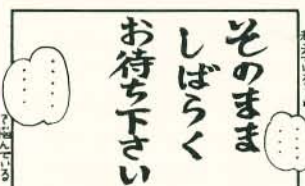 そのまま
しばらく
お待ち下さい
…………
…………
?悩んでいる